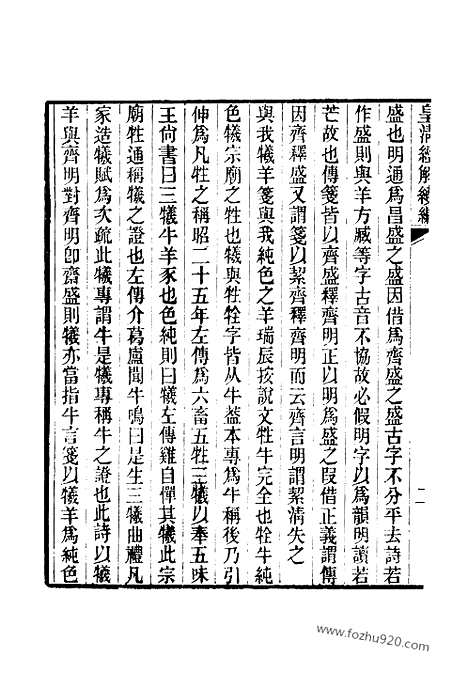 皇清經解續編
二
盛也明通爲昌盛之盛因借爲齊盛之盛古字不分平去詩若
作盛則與羊方臧等字古音不協故必假明字以爲韻明讀若
芒故也傳箋皆以齊盛釋齊明正以明爲盛之叚借正義謂傳
因齊釋盛又謂箋以絜齊釋齊明而云齊言明謂絜清失之
與我犧羊箋與我純色之羊瑞辰按說文牲牛完全也牷牛純
色犧宗廟之牲也犧與牲牷字皆从牛葢本專爲牛稱後乃引
伸爲凡牲之稱昭二十五年左傳爲六畜五牲三犧以奉五味
王尚書曰三犧牛羊豕也色純則曰犧左傳雞自憚其犧此宗
廟牲通稱犧之證也左傳介葛盧聞牛鳴曰是生三犧曲禮凡
家造犧賦爲次疏此犧專謂牛是犧專稱牛之證也此詩以犧
羊與齊明對齊明卽齋盛則犧亦當指牛言箋以犧羊爲純色
www.fozhu920.com